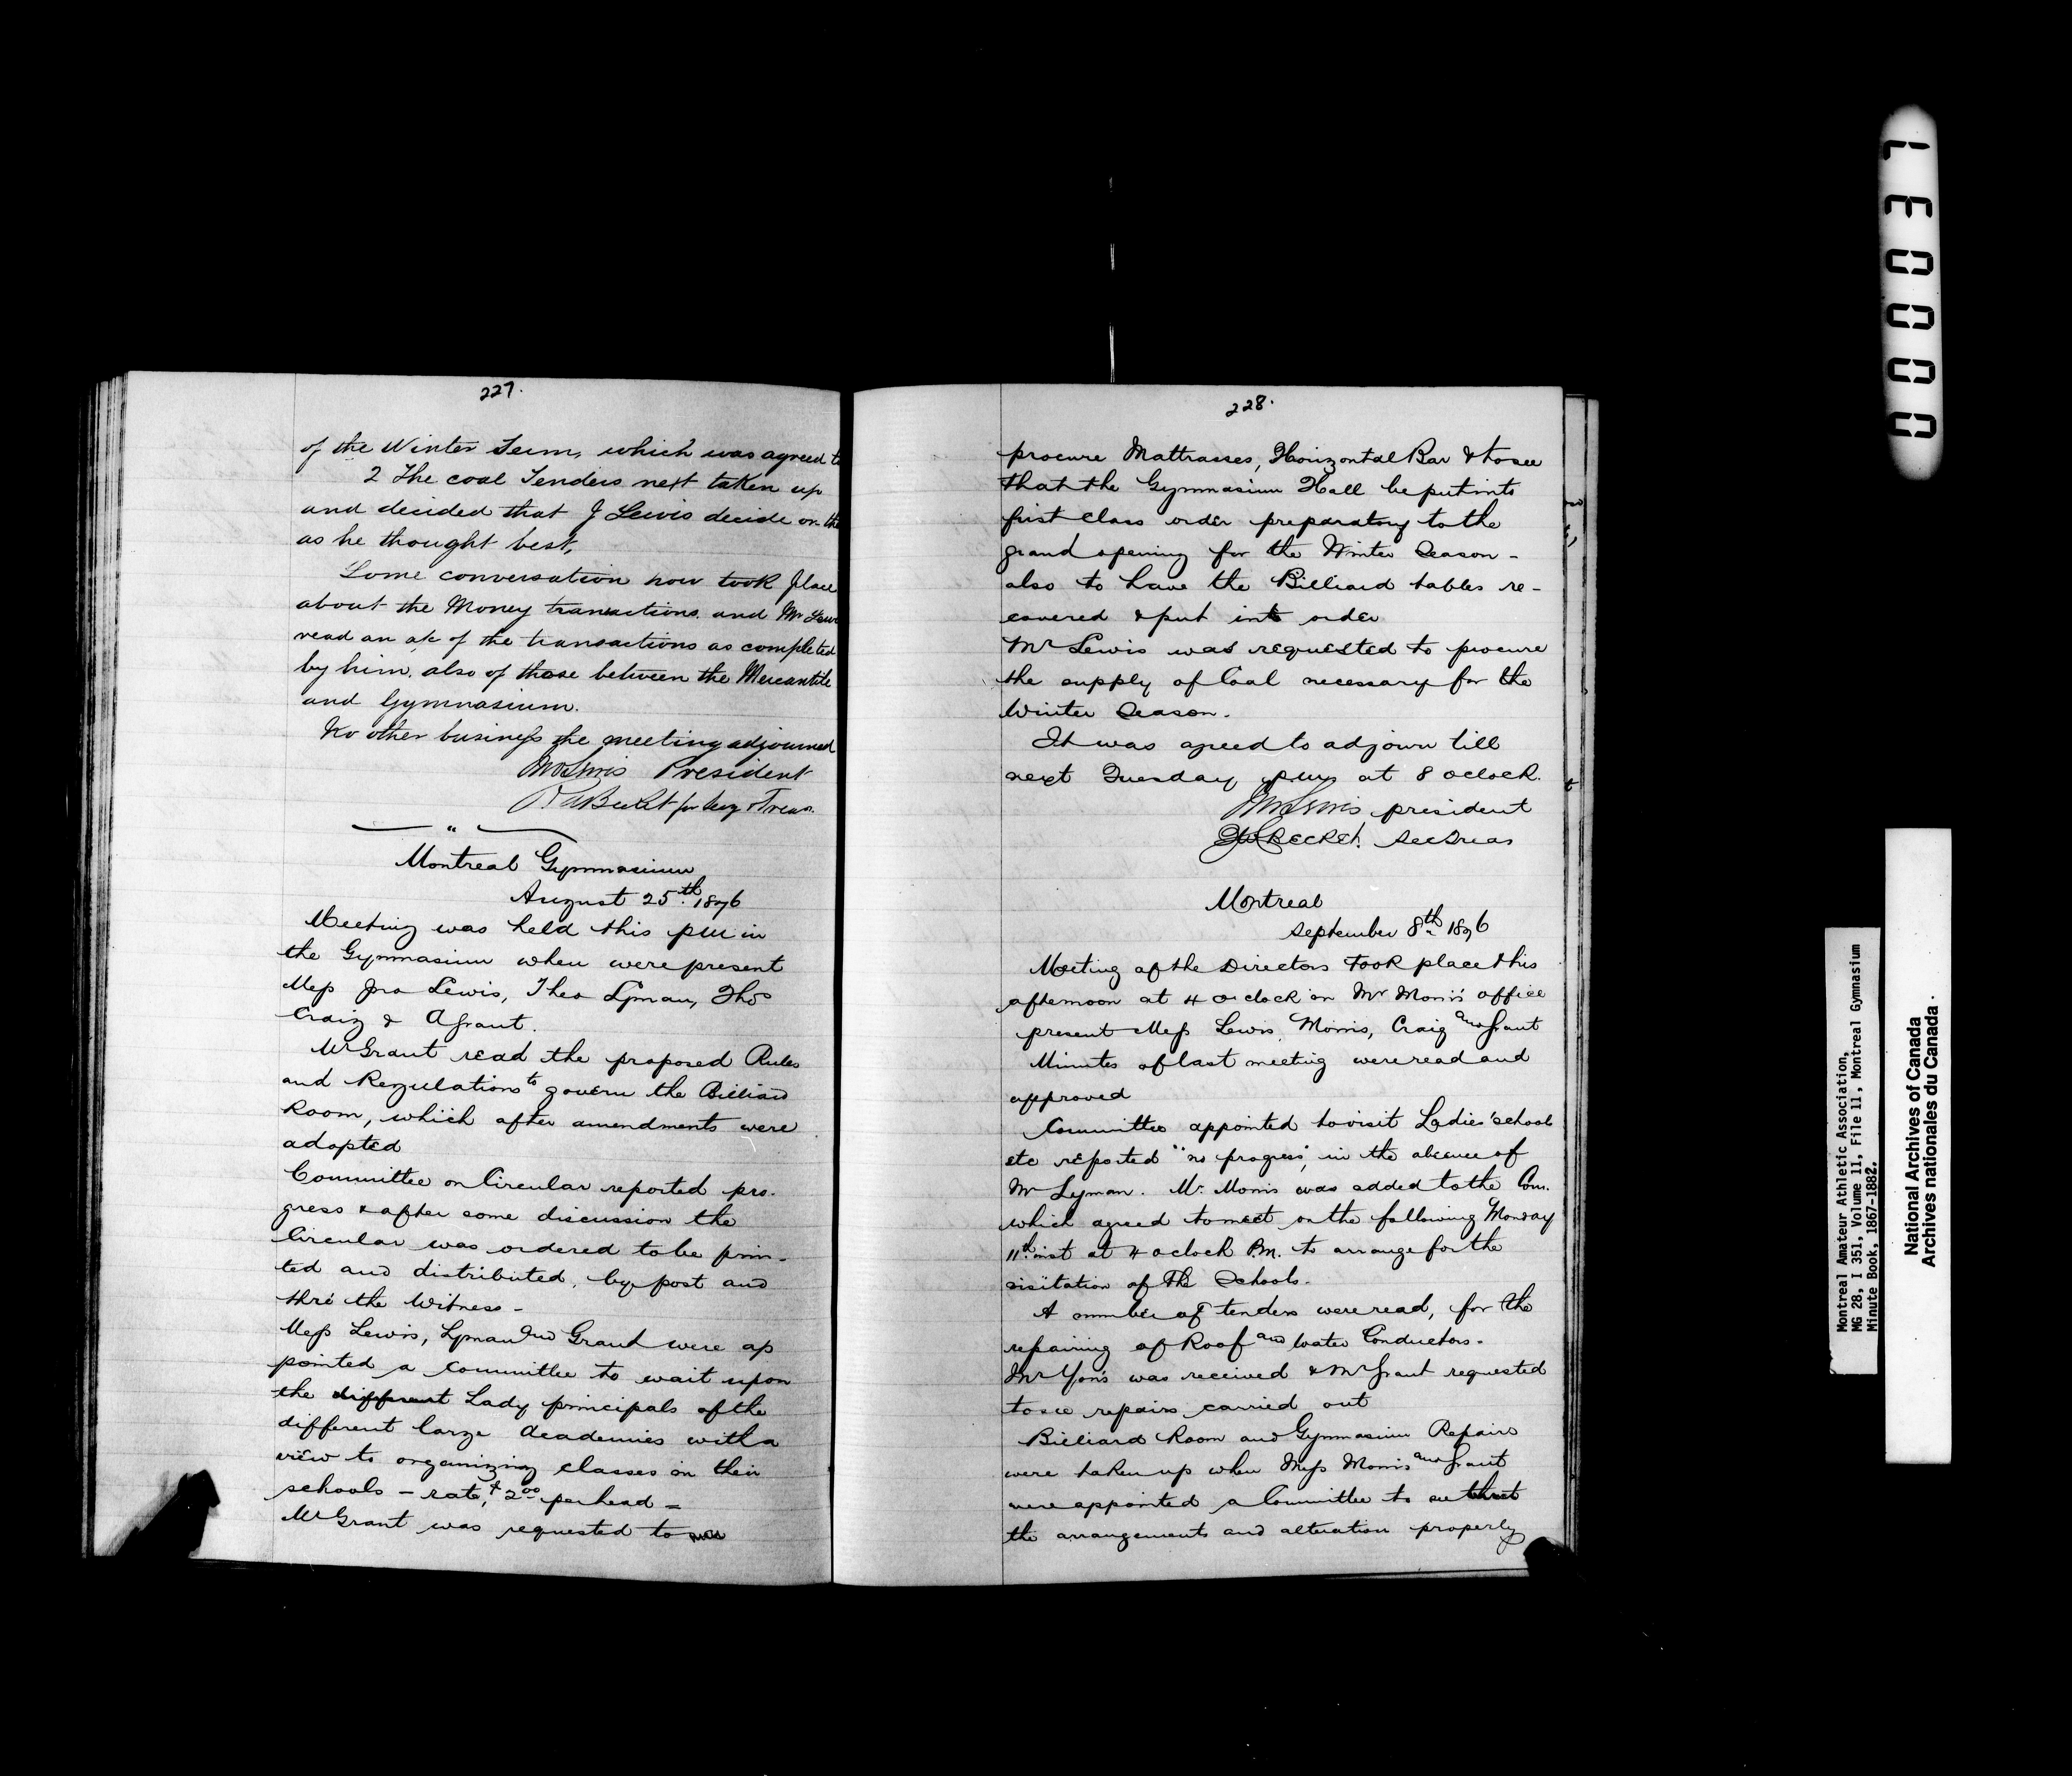 227.
of the Winter Term, which was agreed to
2 The coal Tenders next taken up
and decided that J Lewis decide on the
as he thought best,
Some conversation now took place
about the Money transactions. and Mr Lewis
read an a/c of the transactions as completed
by him, also of those between the Mercantile
and Gymnasium.
No other business the meeting adjourned
Lewis President
for Secy & Treas.
"
Montreal Gymnasium
August 25th 1876
Meeting was held this pm in
the Gymnasium when were present
Mess Jno Lewis, Theo Lyman, Thos
Craig & A Grant.
Mr Grant read the proposed Rules
and Regulations to govern the Billiard
Room, which after amendments were
adopted
Committee on Circular reported pro-
gress & after some discussion the
Circular was ordered to be prin-
ted and distributed, by post and
thro the Witness -
Mess Lewis, Lyman and Grant were ap
pointed a committee to wait upon
the different Lady principals of the
different large Academies with a
view to organizing classes in their
schools - rate, $2.00 per head =
Mr Grant was requested to
228.
procure Mattrasses, Horizontal Bar & to see
that the Gymnasium Hall be put into
first class order preparatory to the
grand opening for the Winter Season -
also to have the Billiard tables re-
covered & put into order
Mr Lewis was requested to procure
the supply of Coal necessary for the
Winter Season.
It was agreed to adjourn till
next Tuesday at 8 oclock.
Lewis president
Becket. Sec Treas
Montreal
September 8th 1876
Meeting of the Directors took place this
afternoon at 4 o'clock in Mr Morris' office
present Mess Lewis, Morris, Craig and Grant
Minutes of last meeting were read and
approved
Committee appointed to visit Ladies' schools
etc reported "no progress", in the absence of
Mr Lyman. Mr. Morris was added to the Com.
which agreed to meet on the following Monday
11th inst at 4 oclock P.M. to arrange for the
visitation of the Schools.
A number of tenders were read, for the
repairing of Roof and water Conductors.
Mr Yon's was received & Mr Grant requested
to see repairs carried out
Billiard Room and Gymnasium Repairs
were taken up when Mess Morris and Grant
were appointed a Committee to see that
the arrangements and alteration properly
000037
Montreal Amateur Athletic Association,
MG 28, I 351, Volume 11, File 11, Montreal Gymnasium
Minute Book, 1867-1882.
National Archives of Canada
Archives nationales du Canada.